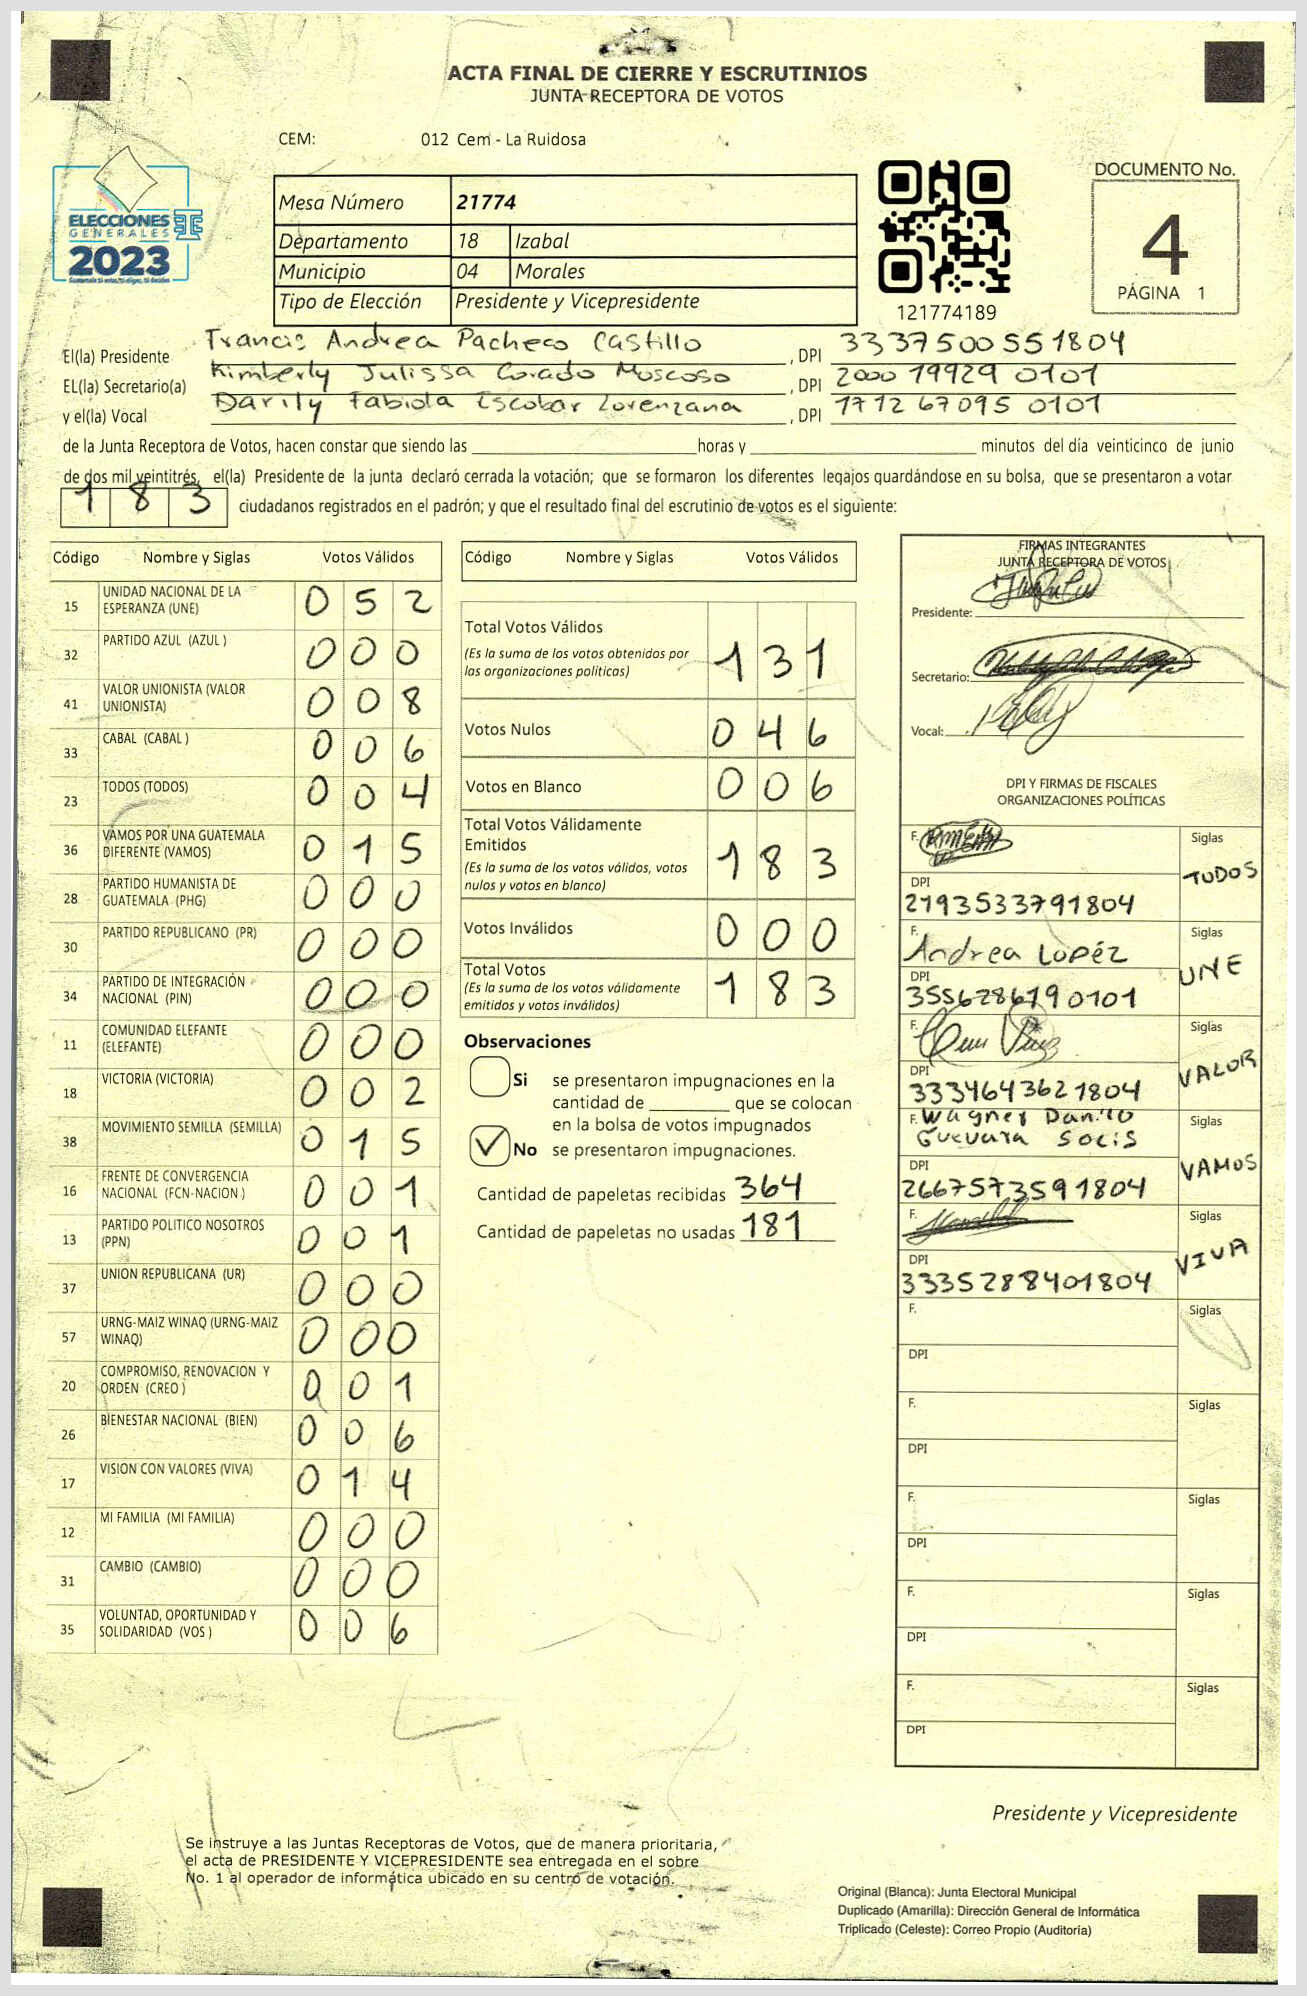 ACTA FINAL DE CIERRE Y ESCRUTINIOS
JUNTA RECEPTORA DE VOTOS
CEM: 012 Cem - La Ruidosa
ELECCIONES
GENERALES
2023
Mesa Número 21774
Departamento 18 Izabal
Municipio 04 Morales
Tipo de Elección Presidente y Vicepresidente
121774189
DOCUMENTO No.
4
PÁGINA 1
El(la) Presidente Francis Andrea Pacheco Castillo, DPI 3337500551804
EL(la) Secretario(a) Kimberly Julissa Corado Moscoso, DPI 2000 19929 0101
y el(la) Vocal Darily Fabiola Escobar Lorenzana, DPI 1712 67095 0101
de la Junta Receptora de Votos, hacen constar que siendo las horas y minutos del día veinticinco de junio
de dos mil veintitrés, el(la) Presidente de la junta declaró cerrada la votación; que se formaron los diferentes legajos guardándose en su bolsa, que se presentaron a votar
183 ciudadanos registrados en el padrón; y que el resultado final del escrutinio de votos es el siguiente:
Código Nombre y Siglas Votos Válidos
15 UNIDAD NACIONAL DE LA ESPERANZA (UNE) 052
32 PARTIDO AZUL (AZUL ) 000
41 VALOR UNIONISTA (VALOR UNIONISTA) 008
33 CABAL (CABAL ) 006
23 TODOS (TODOS) 004
36 VAMOS POR UNA GUATEMALA DIFERENTE (VAMOS) 015
28 PARTIDO HUMANISTA DE GUATEMALA (PHG) 000
30 PARTIDO REPUBLICANO (PR) 000
34 PARTIDO DE INTEGRACIÓN NACIONAL (PIN) 000
11 COMUNIDAD ELEFANTE (ELEFANTE) 000
18 VICTORIA (VICTORIA) 002
38 MOVIMIENTO SEMILLA (SEMILLA) 015
16 FRENTE DE CONVERGENCIA NACIONAL (FCN-NACION ) 001
13 PARTIDO POLITICO NOSOTROS (PPN) 001
37 UNION REPUBLICANA (UR) 000
57 URNG-MAIZ WINAQ (URNG-MAIZ WINAQ) 000
20 COMPROMISO, RENOVACION Y ORDEN (CREO ) 001
26 BIENESTAR NACIONAL (BIEN) 006
17 VISION CON VALORES (VIVA) 014
12 MI FAMILIA (MI FAMILIA) 000
31 CAMBIO (CAMBIO) 000
35 VOLUNTAD, OPORTUNIDAD Y SOLIDARIDAD (VOS ) 006
Código Nombre y Siglas Votos Válidos
Total Votos Válidos 131
(Es la suma de los votos obtenidos por
las organizaciones políticas)
Votos Nulos 046
Votos en Blanco 006
Total Votos Válidamente
Emitidos 183
(Es la suma de los votos válidos, votos
nulos y votos en blanco)
Votos Inválidos 000
Total Votos 183
(Es la suma de los votos válidamente
emitidos y votos inválidos)
Observaciones
Si se presentaron impugnaciones en la
cantidad de que se colocan
en la bolsa de votos impugnados
No se presentaron impugnaciones.
Cantidad de papeletas recibidas 364
Cantidad de papeletas no usadas 181
FIRMAS INTEGRANTES
JUNTA RECEPTORA DE VOTOS
Presidente:
Secretario:
Vocal:
DPI Y FIRMAS DE FISCALES
ORGANIZACIONES POLÍTICAS
F. Siglas TODOS
DPI 2193533791804
F. Andrea Lopéz Siglas UNE
DPI 3556286190101
F. Siglas VALOR
DPI 3334643621804
F. Wagner Danilo Guevara Socis Siglas VAMOS
DPI 2667573591804
F. Siglas VIVA
DPI 3335288401804
F. Siglas
DPI
F. Siglas
DPI
F. Siglas
DPI
F. Siglas
DPI
F. Siglas
DPI
Presidente y Vicepresidente
Se instruye a las Juntas Receptoras de Votos, que de manera prioritaria,
el acta de PRESIDENTE Y VICEPRESIDENTE sea entregada en el sobre
No. 1 al operador de informática ubicado en su centro de votación.
Original (Blanca): Junta Electoral Municipal
Duplicado (Amarilla): Dirección General de Informática
Triplicado (Celeste): Correo Propio (Auditoría)